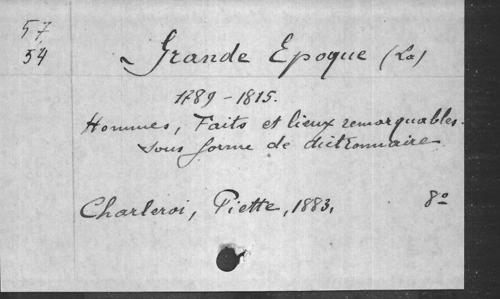 57
54
Grande Epoque (La)
1789-1815.
Hommes, Faits et lieux remarquables.
sous forme de dictionnaire
Charleroi, Piette, 1883. 8°